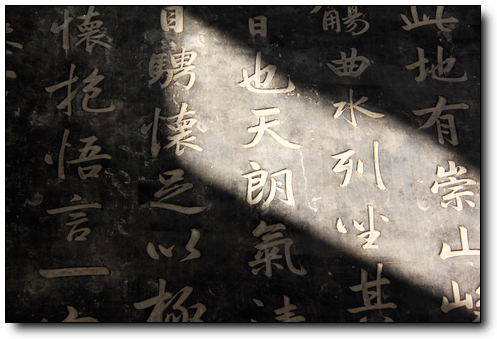 此地有崇山峻
觴曲水列坐其
日也天朗氣清
目騁懷足以極
懷抱悟言一